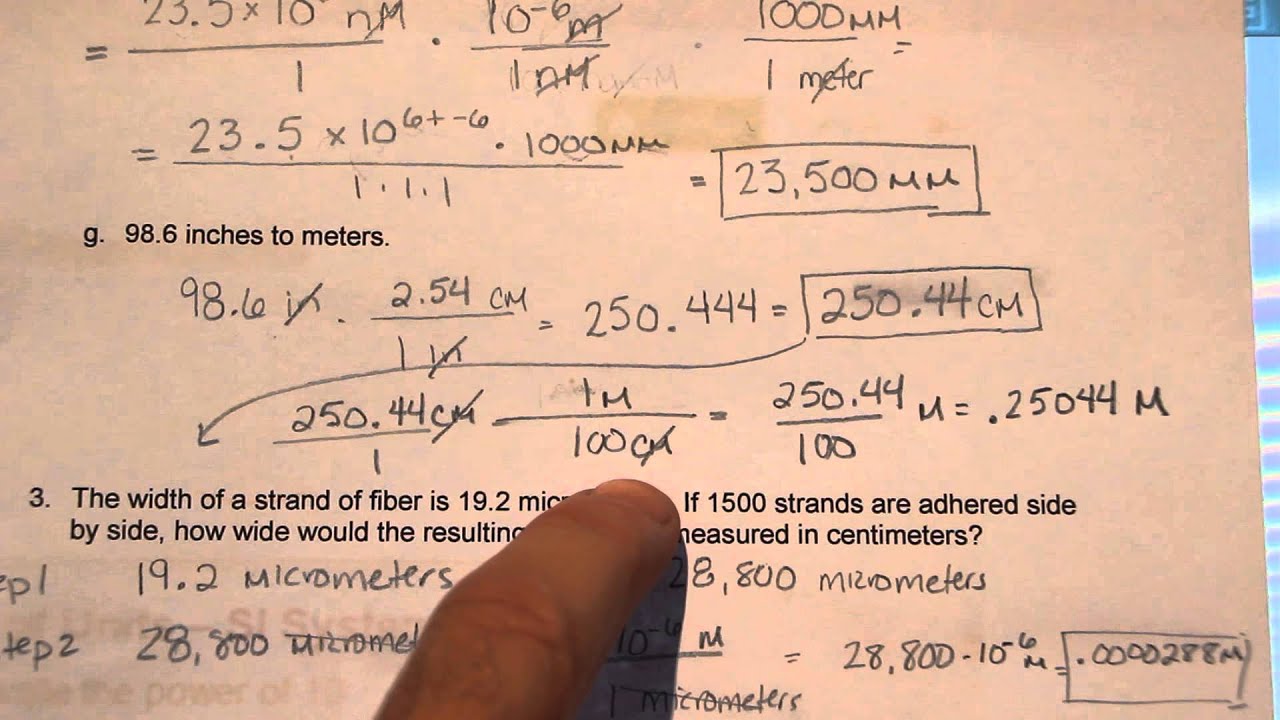 = 23.5 × 10 nM / 1 · 10⁻⁶ m / 1 nM · 1000 MM / 1 meter =
= 23.5 × 10⁶⁺⁻⁶ · 1000 MM / 1 · 1 · 1 = 23,500 MM
g. 98.6 inches to meters.
98.6 in · 2.54 cm / 1 in = 250.444 = 250.44 cm
250.44 cm / 1 1 M / 100 cm = 250.44 / 100 M = .25044 M
3. The width of a strand of fiber is 19.2 If 1500 strands are adhered side
by side, how wide would the resulting measured in centimeters?
ep 1 19.2 micrometers 28,800 micrometers
tep 2 28,800 10⁻⁶ M / 1 micrometers = 28,800 · 10⁻⁶ M = .0000288 M
the power of 10